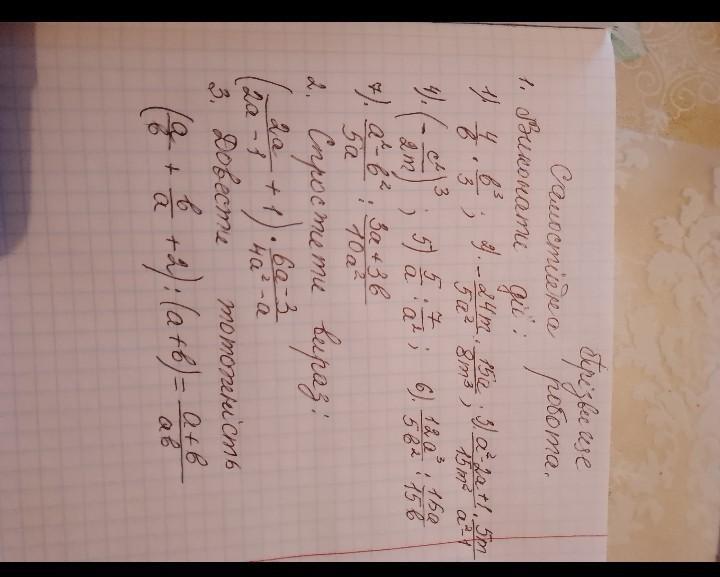 Прізвище
Самостійна робота.
1. Виконати дії:
1). 4/в · в³/3; 2). -24m/5a² · 15a/8m³; 3) a²-2a+1/15m² · 5m/a²-1
4). (-c⁴/2m)³; 5) 5/a : 7/a²; 6). 12a³/5в² : 16a/15в
7). a²-в²/5a : 3a+3в/10a²
2. Спростити вираз:
(2a/2a-1 + 1) · 6a-3/4a²-a
3. Довести тотожність
(a/в + в/a + 2) : (a+в) = a+в/aв